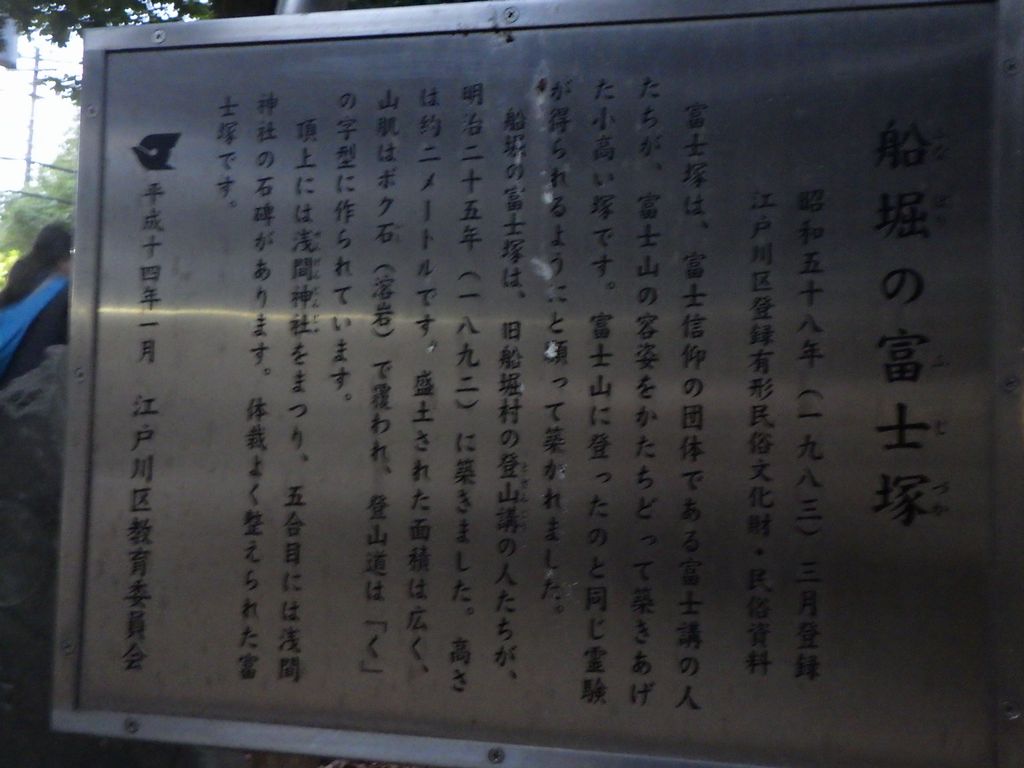 船堀の富士塚
ふな ぼり ふ じ づか
昭和五十八年（一九八三）三月登録
江戸川区登録有形民俗文化財・民俗資料
富士塚は、富士信仰の団体である富士講の人
たちが、富士山の容姿をかたちどって築きあげ
た小高い塚です。富士山に登ったのと同じ霊験
が得られるようにと願って築かれました。
船堀の富士塚は、旧船堀村の登山講の人たちが、
明治二十五年（一八九二）に築きました。高さ
は約二メートルです。盛土された面積は広く、
山肌はボク石（溶岩）で覆われ、登山道は「く」
の字型に作られています。
頂上には浅間神社をまつり、五合目には浅間
神社の石碑があります。体裁よく整えられた富
士塚です。
平成十四年一月 江戸川区教育委員会